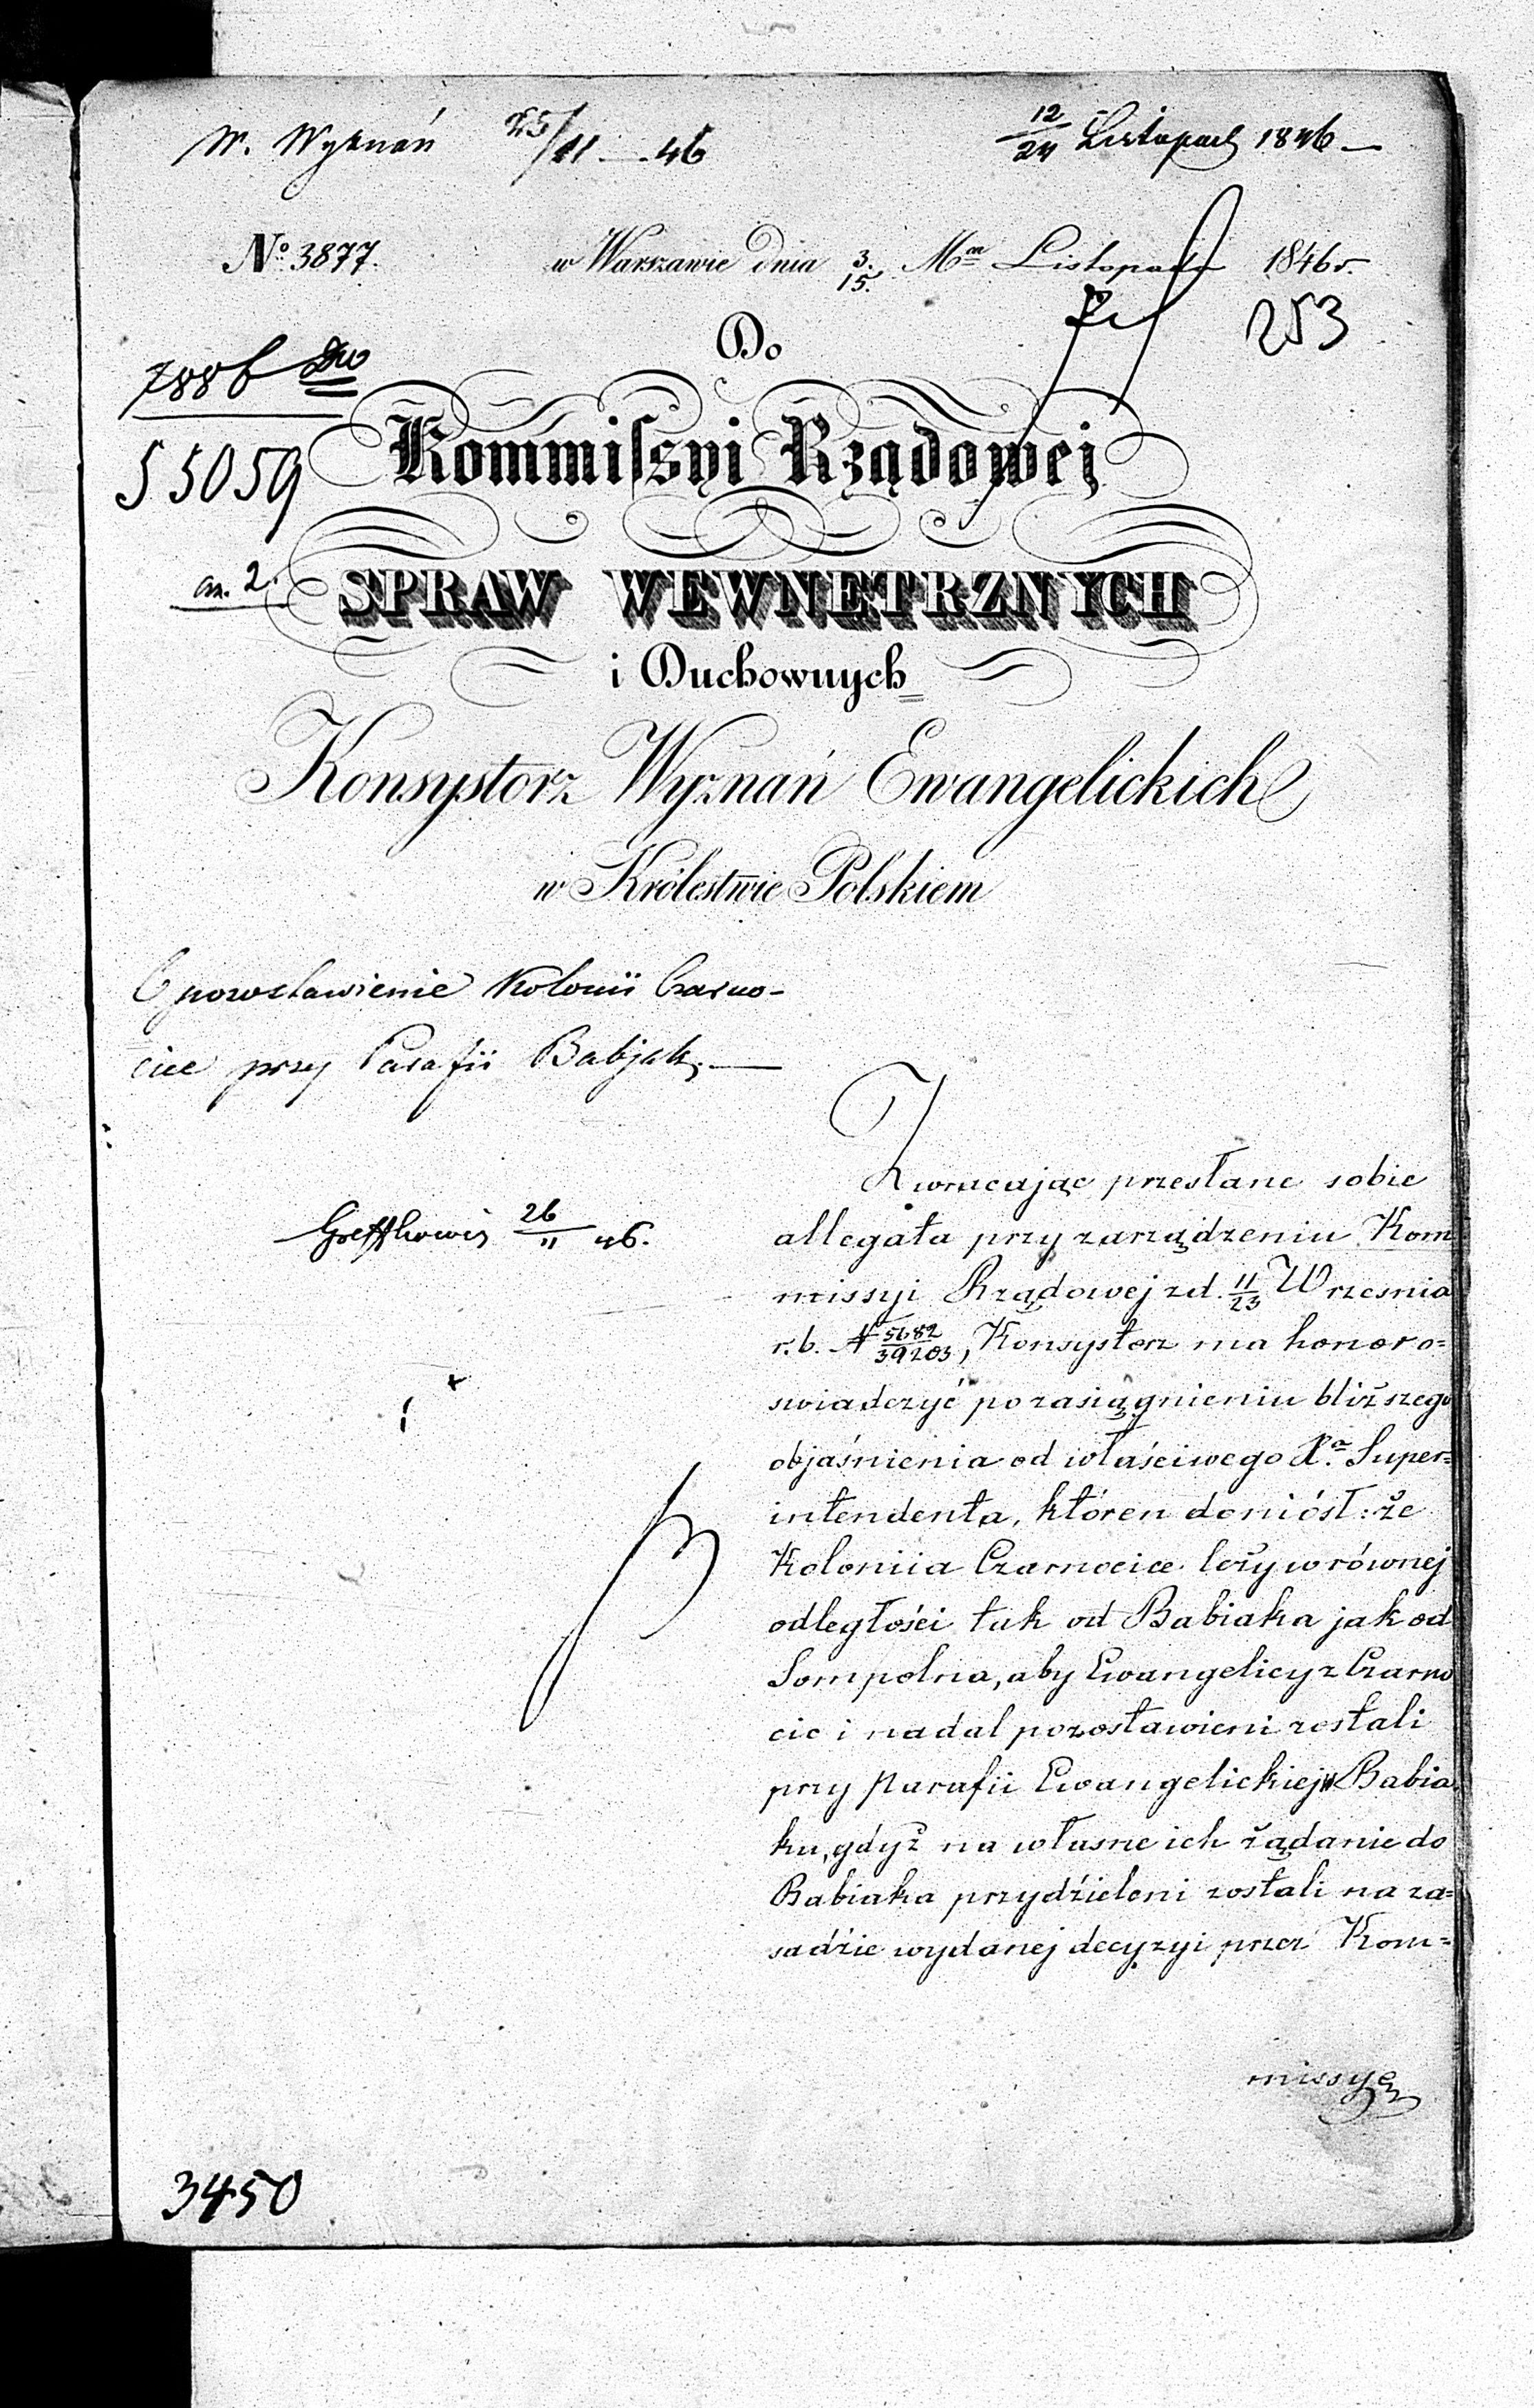 W. Wyznań 25/11 — 46
12/24 Listopad 1846 —
No. 3877. w Warszawie dnia 3./15. Mca Listopada 1846 r.
253
Do
7886
55059
Kommissyi Rządowej
an. 2.
SPRAW WEWNĘTRZNYCH
i Duchownych
Konsystorz Wyznań Ewangelickich
w Królestwie Polskiem
O pozostawienie Kolonii Czarno-
cice przy Parafii Babjak. —
Zwracając przesłane sobie
allegata przy zarządzeniu Kom
26/11 46.
missyi Rządowej z d. 11/23 Wrzesnia
r. b. N 5682/39203, Konsystorz ma honor o=
swiadczyć po zasiągnieniu bliższego
objaśnienia od właściwego Xa. Super=
intendenta, któren doniósł: że
Koloniia Czarnocice leży w równej
odległości tak od Babiaka jak od
Sompolna, aby Ewangelicy z Czarno
cic i nadal pozostawieni zostali
przy Parafii Ewangelickiej w Babia
ku, gdyż na własne ich żądanie do
Babiaka przydźieleni zostali na za=
sadźie wydanej decyzyi przez Kom=
missyę
3450